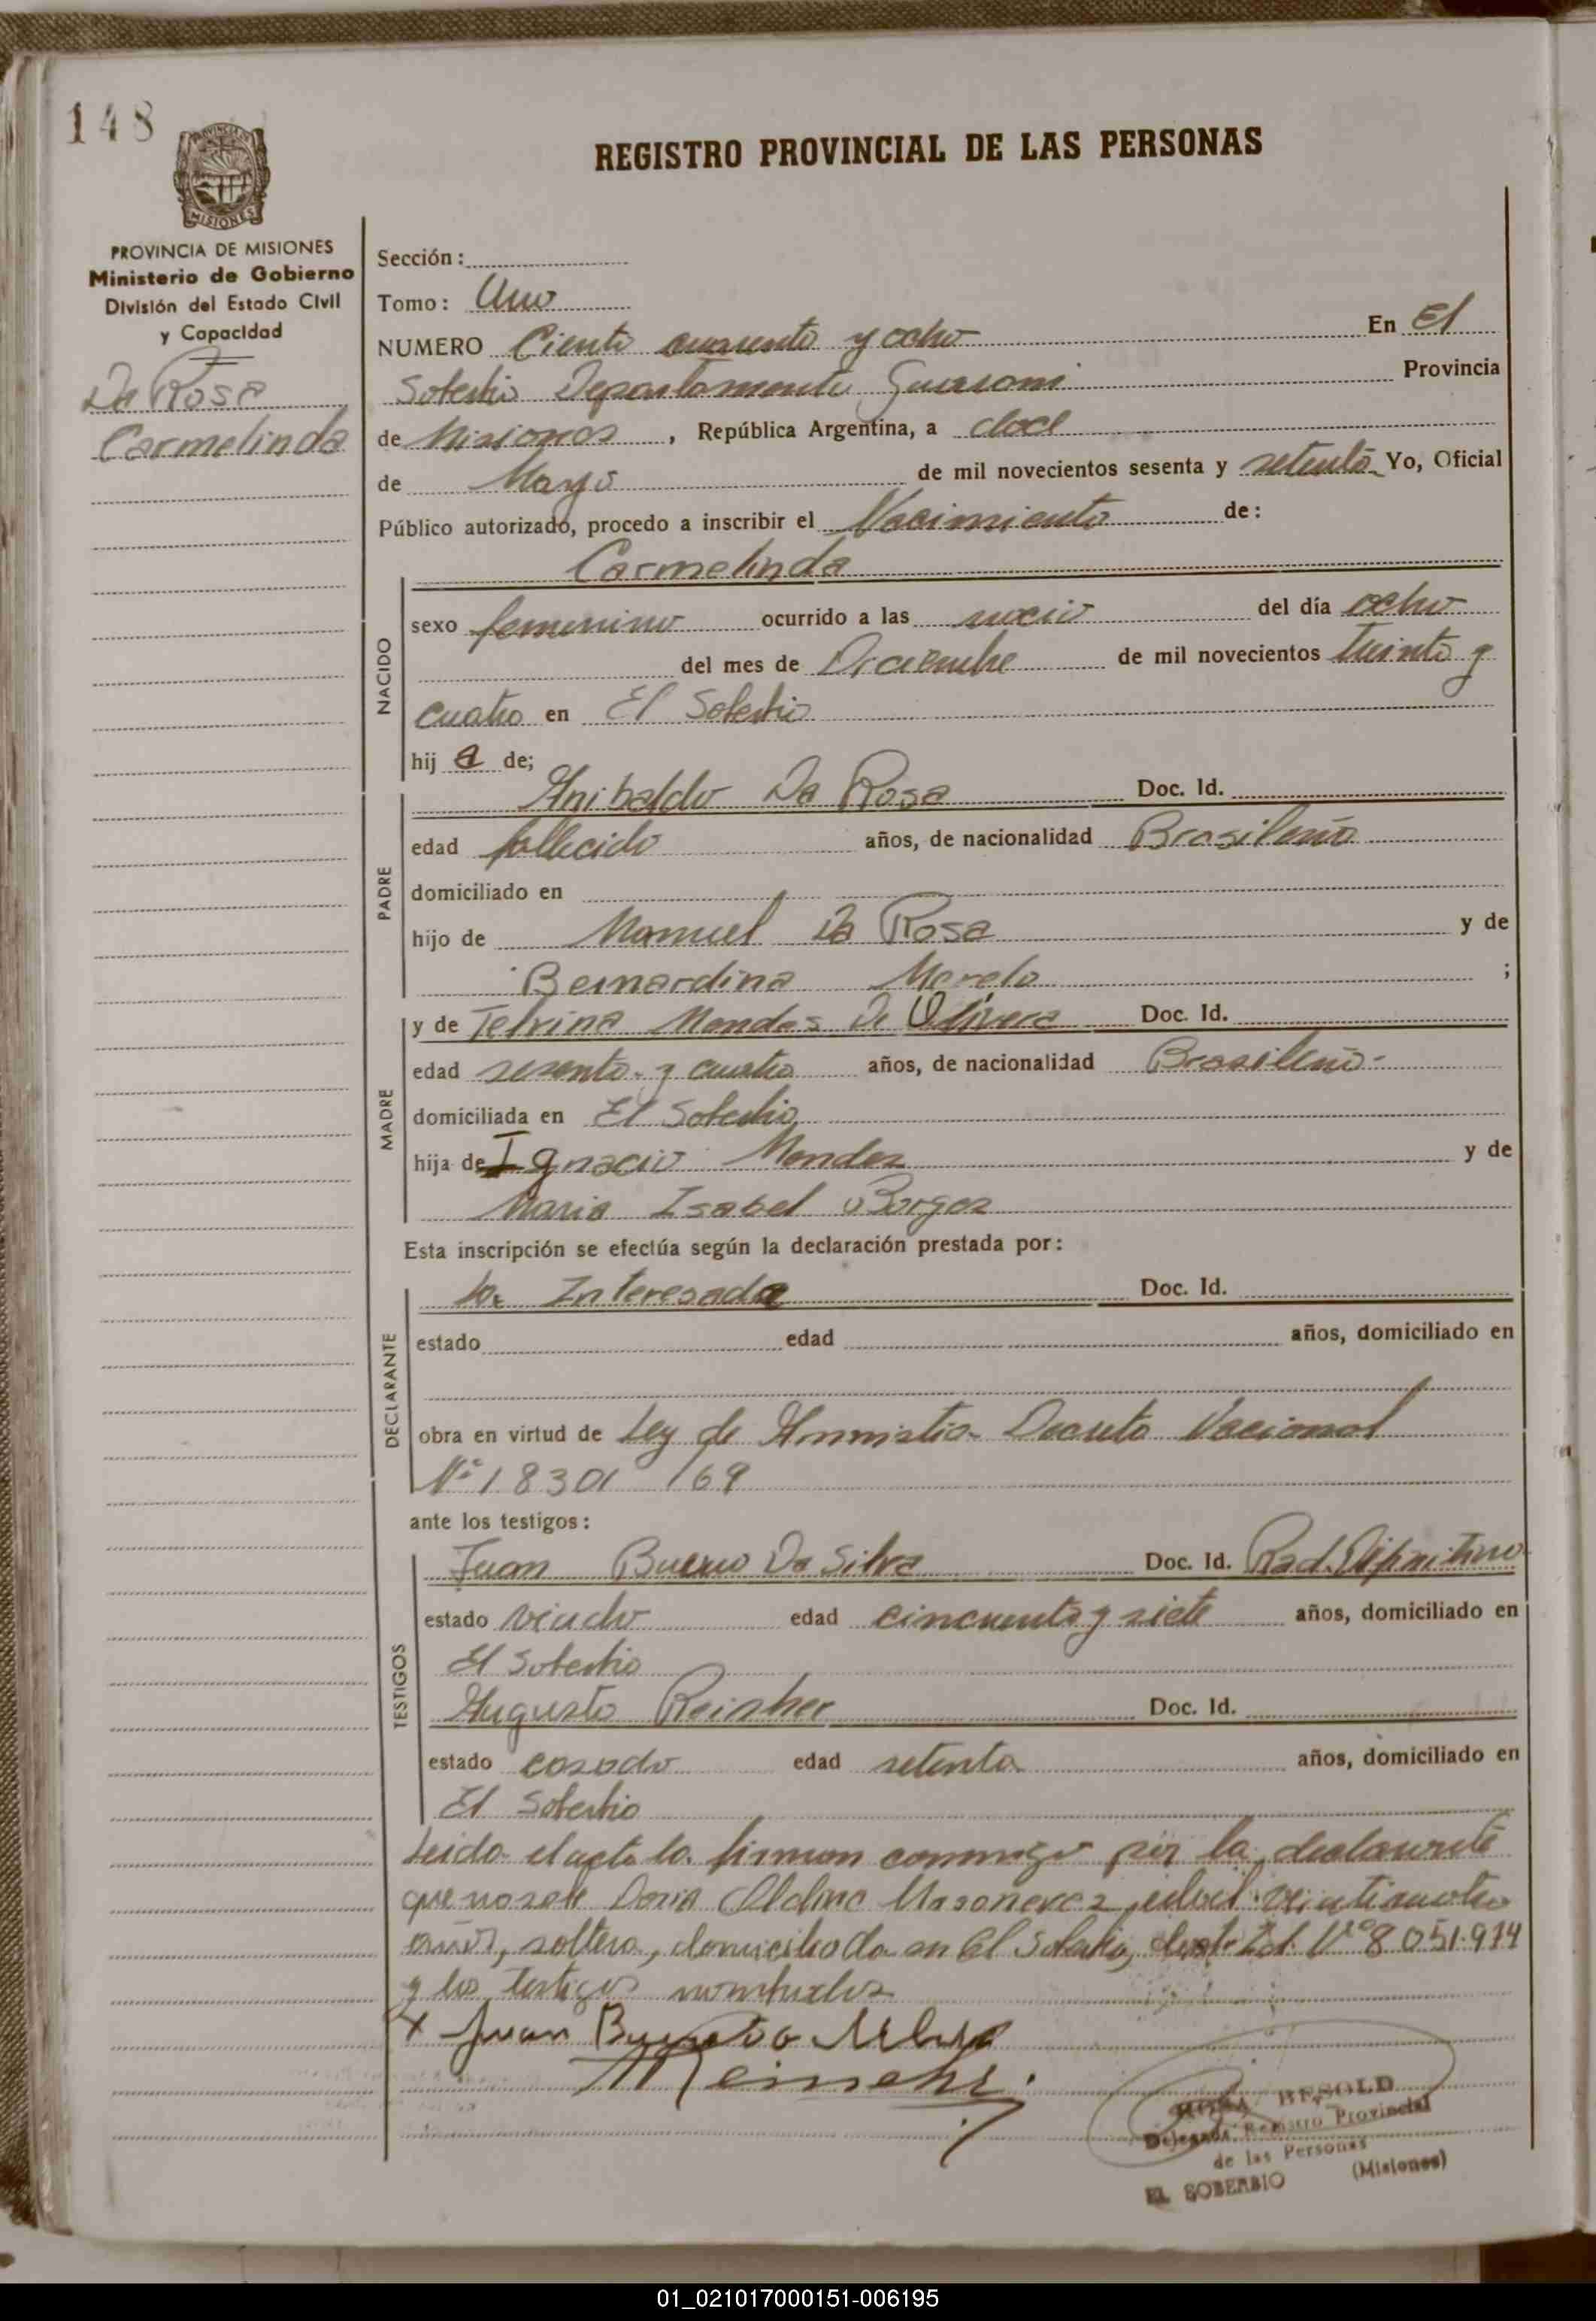 148
PROVINCIA DE MISIONES
MISIONES
REGISTRO PROVINCIAL DE LAS PERSONAS
PROVINCIA DE MISIONES
Ministerio de Gobierno
División del Estado Civil
y Capacidad
Da Rosa
Carmelinda
Sección:
Tomo: Uno
NUMERO Ciento cuarenta y ocho En El
Soberbio Departamento Guarani Provincia
de Misiones, República Argentina, a doce
de Mayo de mil novecientos sesenta y setenta Yo, Oficial
Público autorizado, procedo a inscribir el Nacimiento de:
Carmelinda
NACIDO
sexo femenino ocurrido a las nació del día ocho
del mes de Diciembre de mil novecientos treinta y
cuatro en El Soberbio
hij a de;
PADRE
Anibaldo Da Rosa Doc. Id.
edad fallecido años, de nacionalidad Brasileño
domiciliado en
hijo de Manuel Da Rosa y de
Bernardina Merelo ;
MADRE
y de Telvina Mendes De Olivera Doc. Id.
edad sesenta y cuatro años, de nacionalidad Brasileño-
domiciliada en El Soberbio
hija de Ignacio Mendez y de
Maria Isabel Borges
Esta inscripción se efectúa según la declaración prestada por:
DECLARANTE
la Interesada Doc. Id.
estado edad años, domiciliado en
obra en virtud de Ley de Amnistia- Decreto Nacional
Nº 18301 /69
ante los testigos:
TESTIGOS
Juan Bueno Da Silva Doc. Id. Rad. Difinitivo
estado viudo edad cincuenta y siete años, domiciliado en
El Soberbio
Augusto Reisher Doc. Id.
estado casado edad setenta años, domiciliado en
El Soberbio
Leida el acta la firman conmigo por la declarante
que no sabe Doria edad veinticuatro
años, soltera, domiciliada en El Soberbio, Nº 8051.974
y los testigos nombrados
x Juan Bueno da Silva
ROSA BESOLD
Delegada Registro Provincial
de las Personas
EL SOBERBIO (Misiones)
01_021017000151-006195